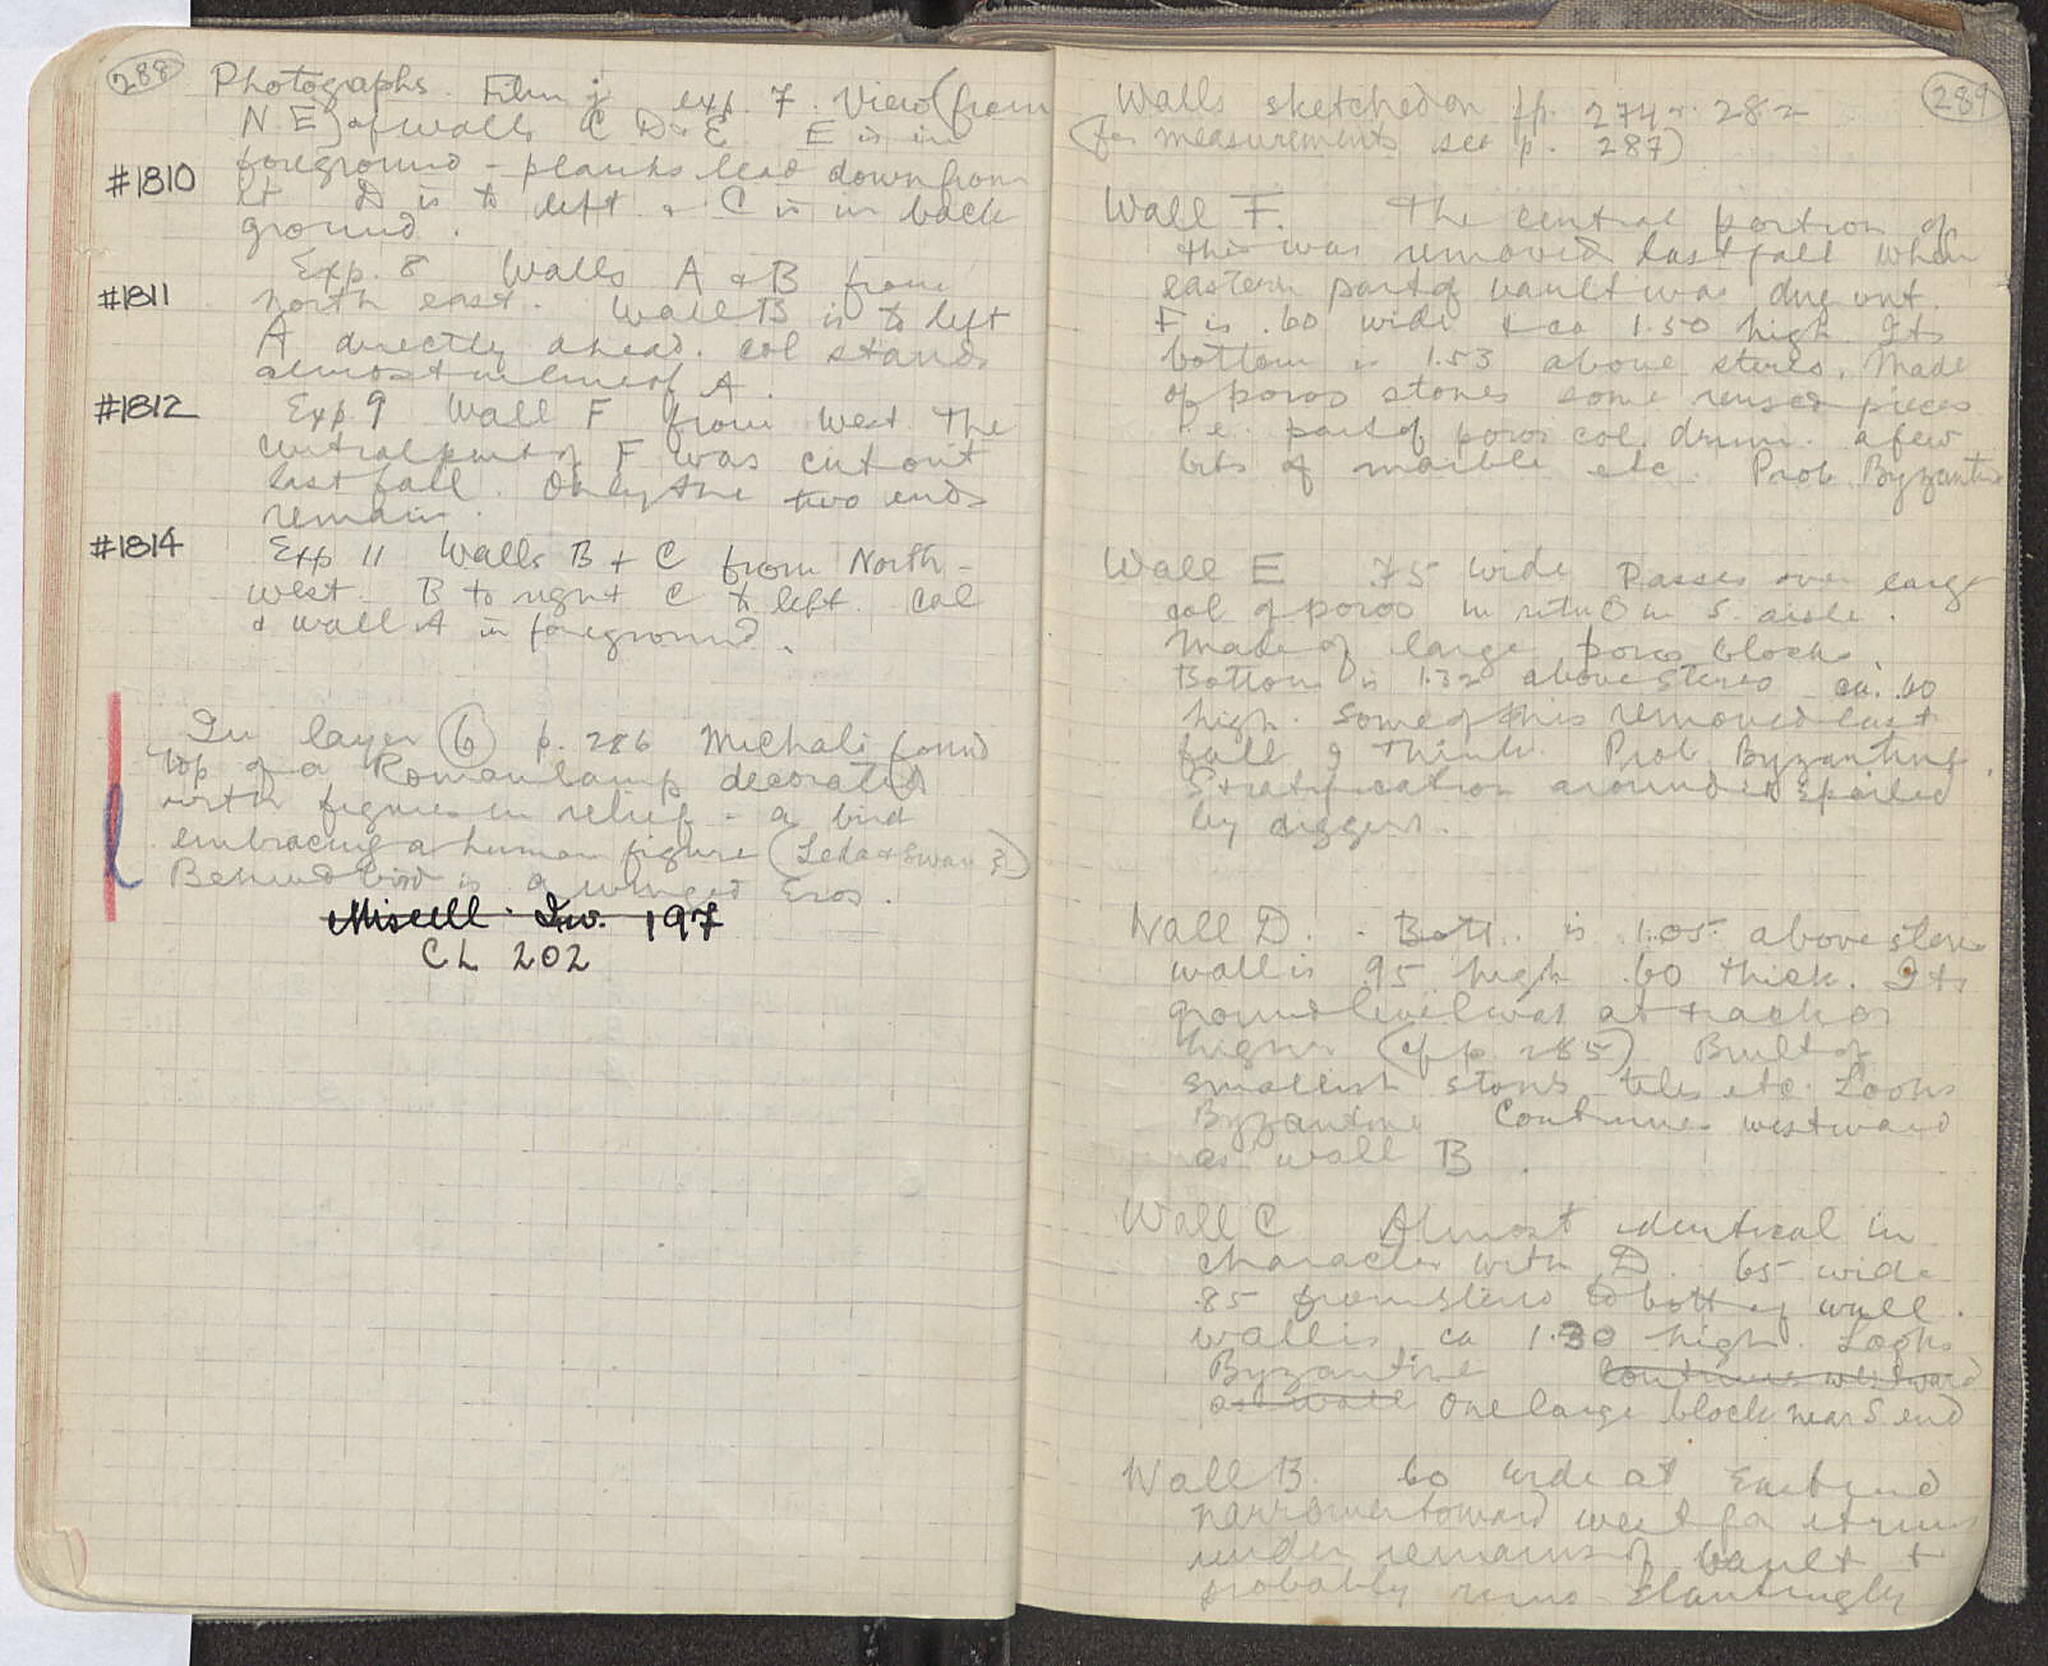 288
Photographs. Film j exp. 7. View (from
N E) of walls C D & E E is in
#1810
foreground - planks lead down from
it D is to left & C is in back
ground.
Exp. 8 Walls A & B from
#1811
north east. Wall B is to left
A directly ahead. col stands
almost in line of A.
#1812
Exp 9 Wall F from West. The
central part of F was cut out
last fall. Only the two ends
remain.
#1814
Exp 11 Walls B + C from North-
west. B to right C to left. Col
& wall A in foreground.
In layer 6 p. 286 Michali found
top of a Roman lamp decorated
with figures in relief - a bird
embracing a human figure (Leda & Swan?)
Behind bird is a winged Eros.
Miscell. Inv. 197
CL 202
289
Walls sketched on pp. 274 & 282
(for measurements see p. 287)
Wall F. The central portion of
this was removed last fall when
eastern part of vault was dug out.
F is .60 wide & ca 1.50 high. Its
bottom is 1.53 above stereo. Made
of poros stones some reused pieces
i.e. part of poros col. drum. a few
bits of marble etc. Prob. Byzantine
Wall E .75 wide Passes over large
col of poros in situ in S. aisle.
Made of large poros blocks.
Bottom is 1.32 above stereo ca. .60
high. Some of this removed last
fall I think. Prob. Byzantine.
Stratification around is spoiled
by diggers.
Wall D. Bott. is 1.05 above stereo
wall is .95 high .60 thick. Its
ground level was at track or
higher (cf p. 285) Built of
smallish stones tiles etc. Looks
Byzantine Continues westward
as wall B.
Wall C Almost identical in
character with D. .65 wide
.85 from stereo to bott of wall.
wall is ca 1.30 high. Looks
Byzantine Continues westward
as wall One large block near S end
Wall B. .60 wide at East end
narrower toward west for it runs
under remains of vault +
probably runs slantingly